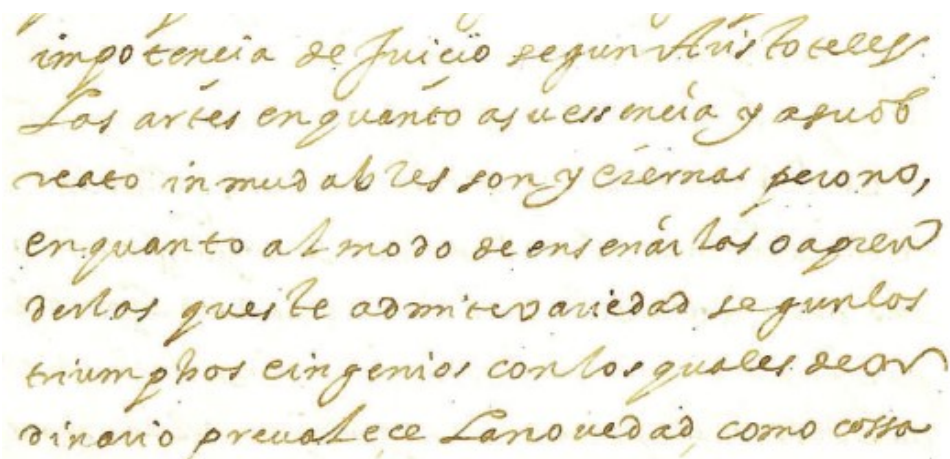 impotencia de Juicio segun Aristoteles
Las artes enquanto asuessencia y asuob
reato inmudables son y eternas perono,
enquanto al modo de enseñarlas o apren
derlas queste admitevariedad segunlos
triumphos eingenios conlos quales deor
dinario prevalece Lanovedad como cossa